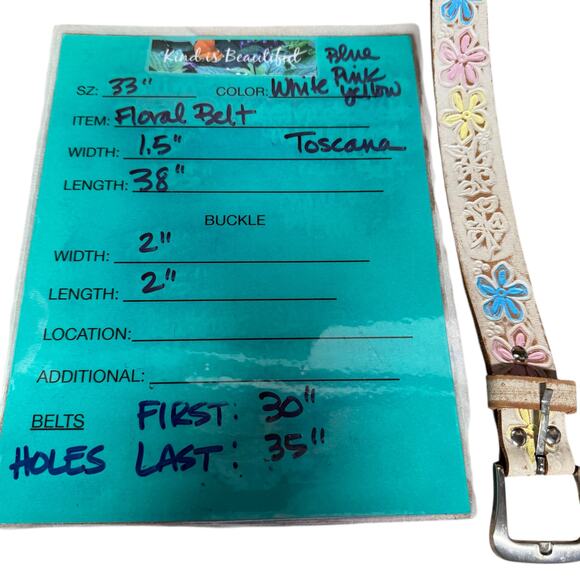 Kind is Beautiful
Blue
SZ: 33" COLOR: White Pink
Yellow
ITEM: Floral Belt
WIDTH: 1.5" Toscana
LENGTH: 38"
BUCKLE
WIDTH: 2"
LENGTH: 2"
LOCATION:
ADDITIONAL:
BELTS FIRST: 30"
HOLES LAST: 35"